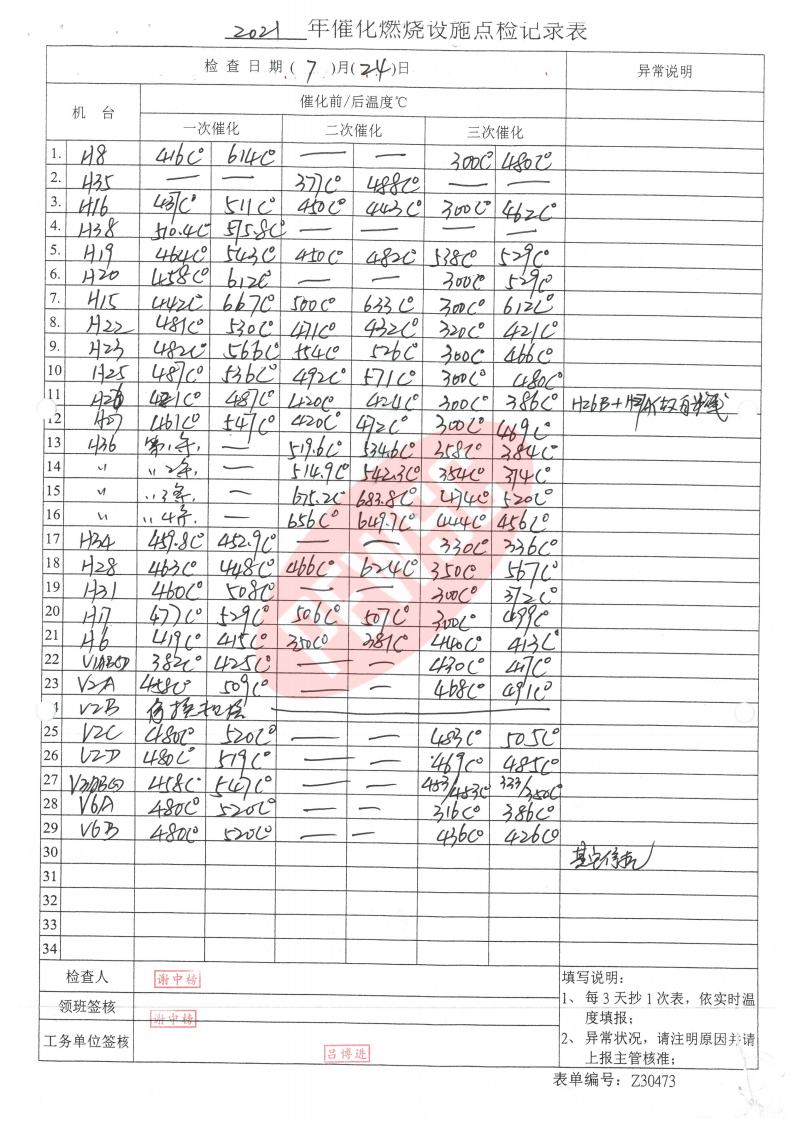 2021 年催化燃烧设施点检记录表
检查日期(7)月(24)日 异常说明
机 台 催化前/后温度℃
一次催化 二次催化 三次催化
1. H8 416C° 614C° — — 300C° 480C°
2. H35 — — 377C° 488C° — —
3. H16 437C° 511C° 450C° 443C° 300C° 462C°
4. H38 510.4C° 515.8C° — — — —
5. H19 464C° 543C° 450C° 482C° 538C° 529C°
6. H20 458C° 612C° — — 300C° 529C°
7. H15 442C° 667C° 500C° 633C° 300C° 612C°
8. H22 481C° 530C° 471C° 432C° 320C° 421C°
9. H23 482C° 566C° 554C° 526C° 300C° 466C°
10 H25 487C° 536C° 492C° 571C° 300C° 480C°
11 H26 421C° 487C° 420C° 424C° 300C° 386C° H26B+
12 H27 461C° 547C° 420C° 472C° 300C° 469C°
13 H36 第1条. — 519.6C° 534.6C° 358C° 384C°
14 〃 〃2条. — 514.9C° 542.3C° 354C° 374C°
15 〃 〃3条. — 675.2C° 683.8C° 474C° 520C°
16 〃 〃4条. — 656C° 649.7C° 444C° 456C°
17 H34 459.8C° 452.9C° — — 330C° 336C°
18 H28 463C° 448C° 466C° 624C° 350C° 567C°
19 H31 460C° 508C° — — 300C° 372C°
20 H17 477C° 529C° 506C° 507C° 300C° 499C°
21 H6 419C° 415C° 350C° 381C° 440C° 413C°
22 382C° 425C° — — 430C° 417C°
23 V2A 458C° 509C° — — 468C° 491C°
V2B
25 V2C 480C° 520C° — — 483C° 505C°
26 V2D 480C° 519C° — — 469C° 485C°
27 458C° 547C° — — 453/453C° 333/350C°
28 V6A 480C° 520C° — — 316C° 386C°
29 V6B 480C° 520C° — — 436C° 426C°
30 其它停机
31
32
33
34
检查人 谢中榜 填写说明:
领班签核 谢中榜 1、每3天抄1次表，依实时温度填报;
工务单位签核 吕博进 2、异常状况，请注明原因并请上报主管核准;
表单编号: Z30473